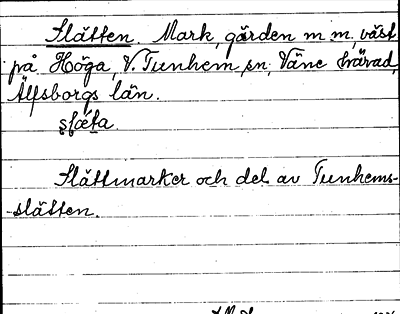 Slätten. Mark, gärden m. m. väst
på Höga, V. Tunhem sn, Väne härad,
Älfsborgs län.
Slättmarker och del av Tunhems-
-slätten.